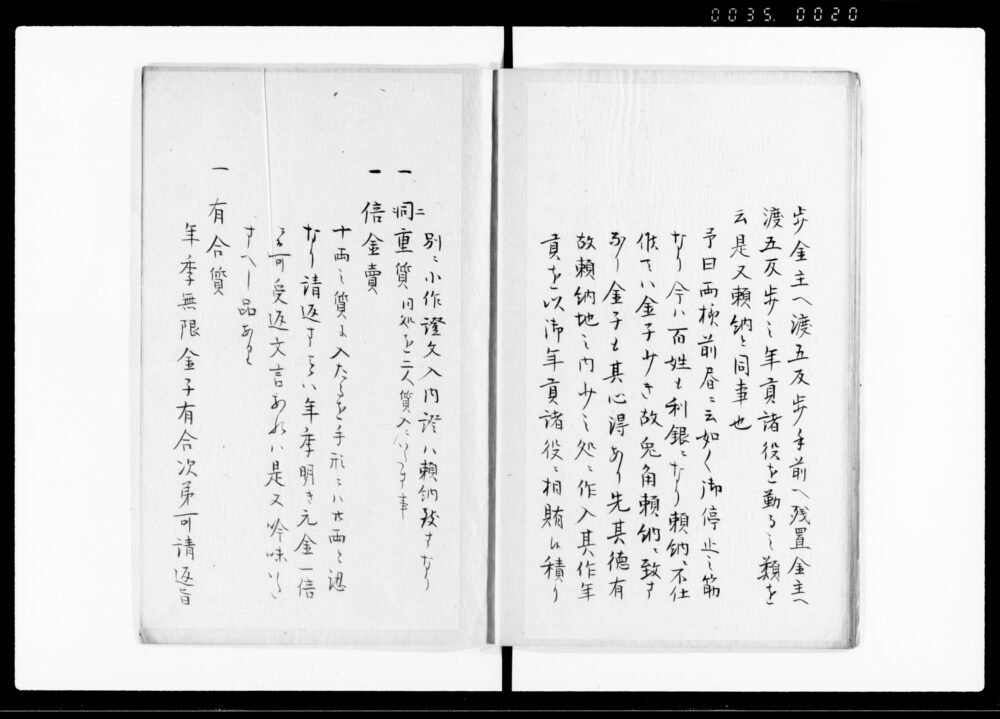 0035. 0020
歩金主へ渡五反歩手前へ残置金主へ
渡五反歩之年貢諸役を勤る之類を
云是又頼納と同事也
予曰両様前昼ニ云如く御停止之筋
なり今ハ百姓も利銀ニなり頼納不仕
候てハ金子少き故兎角頼納ニ致す
なり金子も其心得あり先其徳有
故頼納地之内少之処ニ作入其作年
貢を以御年貢諸役ニ相賄候積り
別ニ小作證文入内證ハ頼納致すなり
一 洞ニ重質 同処を二人質入ニいたす事
一 倍金賣
十両之質に入たるを手形ニハ廿両と認
なり請返するハ年季明き元金一倍
可受返文言あれハ是又吟味いたす
すへし品あり
一 有合質
年季無限金子有合次第可請返旨